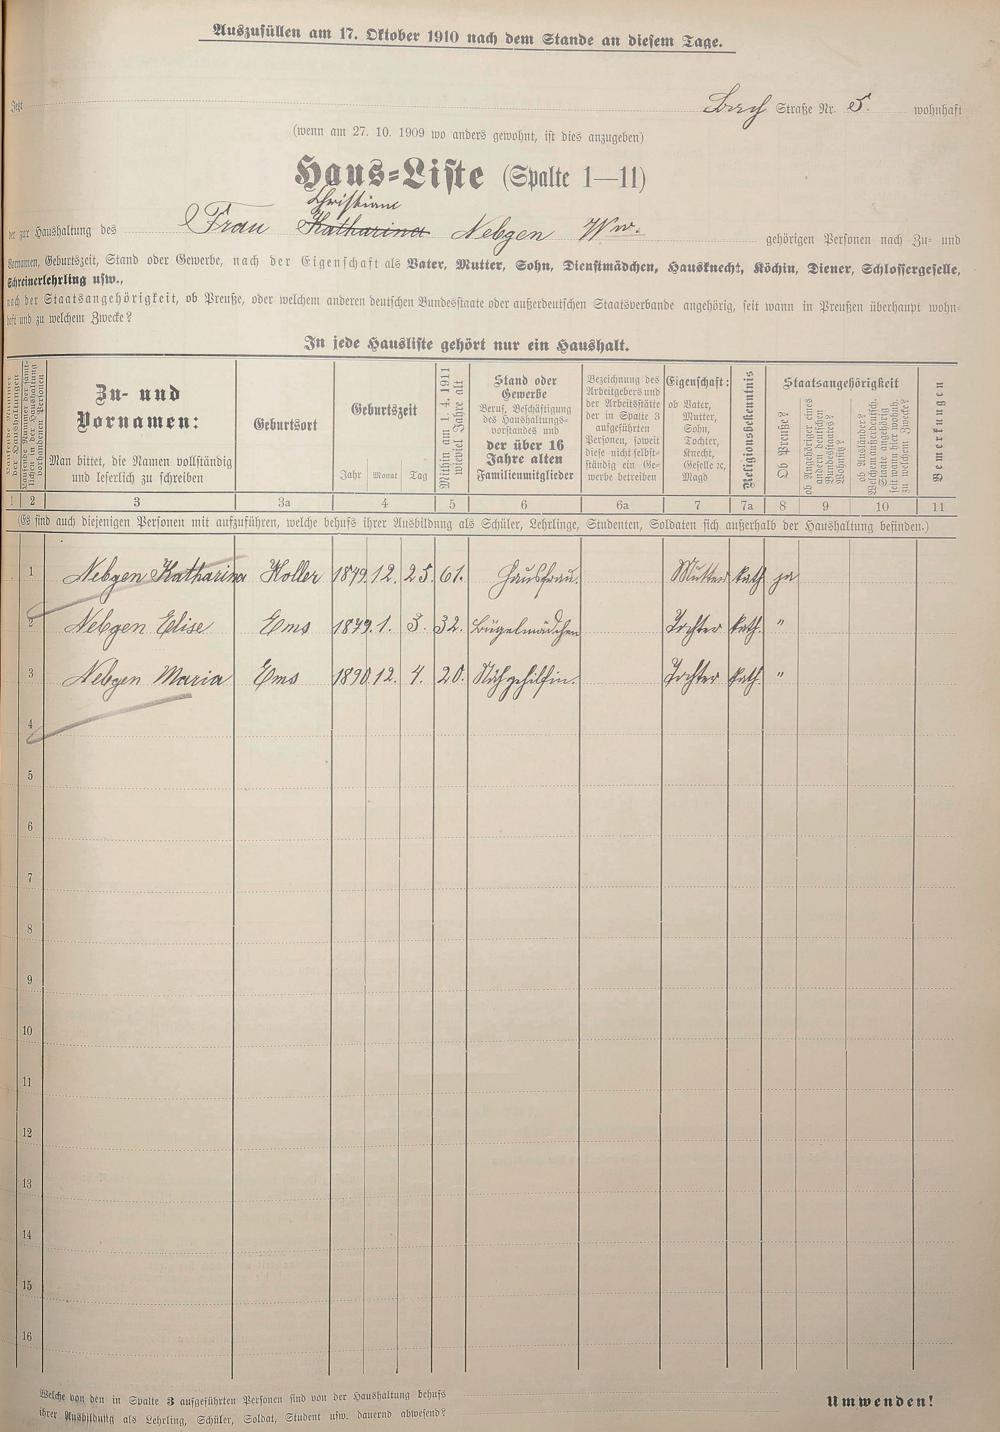 Auszufüllen am 17. Oktober 1910 nach dem Stande an diesem Tage.
Jetzt Straße Nr. 5. wohnhaft
(wenn am 27. 10. 1909 wo anders gewohnt, ist dies anzugeben)
Haus-Liste (Spalte 1—11)
Christiane
der zur Haushaltung des Frau Katharina Nebgen Ww. gehörigen Personen nach Zu- und
Vornamen, Geburtszeit, Stand oder Gewerbe, nach der Eigenschaft als Vater, Mutter, Sohn, Dienstmädchen, Hausknecht, Köchin, Diener, Schlossergeselle,
Schreinerlehrling usw.,
nach der Staatsangehörigkeit, ob Preuße, oder welchem anderen deutschen Bundesstaate oder außerdeutschen Staatsverbande angehörig, seit wann in Preußen überhaupt wohn-
haft und zu welchem Zwecke?
In jede Hausliste gehört nur ein Haushalt.
Laufende Nummer der Haushaltungen
Laufende Nummer der sämt-
lichen in der Haushaltung
vorhandenen Personen
Zu- und
Vornamen:
Man bittet, die Namen vollständig
und leserlich zu schreiben
Geburtsort
Geburtszeit
Jahr Monat Tag
Mithin am 1. 4. 1911
wieviel Jahre alt
Stand oder
Gewerbe
Beruf, Beschäftigung
des Haushaltungs-
vorstandes und
der über 16
Jahre alten
Familienmitglieder
Bezeichnung des
Arbeitgebers und
der Arbeitsstätte
der in Spalte 3
aufgeführten
Personen, soweit
diese nicht selbst-
ständig ein Ge-
werbe betreiben
Eigenschaft:
ob Vater,
Mutter,
Sohn,
Tochter,
Knecht,
Geselle ꝛc,
Magd
Religionsbekenntnis
Staatsangehörigkeit
Ob Preuße?
ob Angehöriger eines
andern deutschen
Bundesstaates?
Wohnsitz?
ob Ausländer?
Welchem außerdeutsch.
Staate angehörig
seit wann hier wohnh.
zu welchem Zwecke?
Bemerkungen
1 2 3 3a 4 5 6 6a 7 7a 8 9 10 11
(Es sind auch diejenigen Personen mit aufzuführen, welche behufs ihrer Ausbildung als Schüler, Lehrlinge, Studenten, Soldaten sich außerhalb der Haushaltung befinden.)
1 Nebgen Katharina Holler 1849. 12. 25. 61. Hausfrau. Mutter kath ja
2 Nebgen Elise Ems 1879. 1. 3. 32. Bügelmädchen Tochter kath. "
3 Nebgen Maria Ems 1890. 12. 4. 20. Nähgehilfin. Tochter kath. "
4
5
6
7
8
9
10
11
12
13
14
15
16
Welche von den in Spalte 3 aufgeführten Personen sind von der Haushaltung behufs
ihrer Ausbildung als Lehrling, Schüler, Soldat, Student usw. dauernd abwesend?
Umwenden!